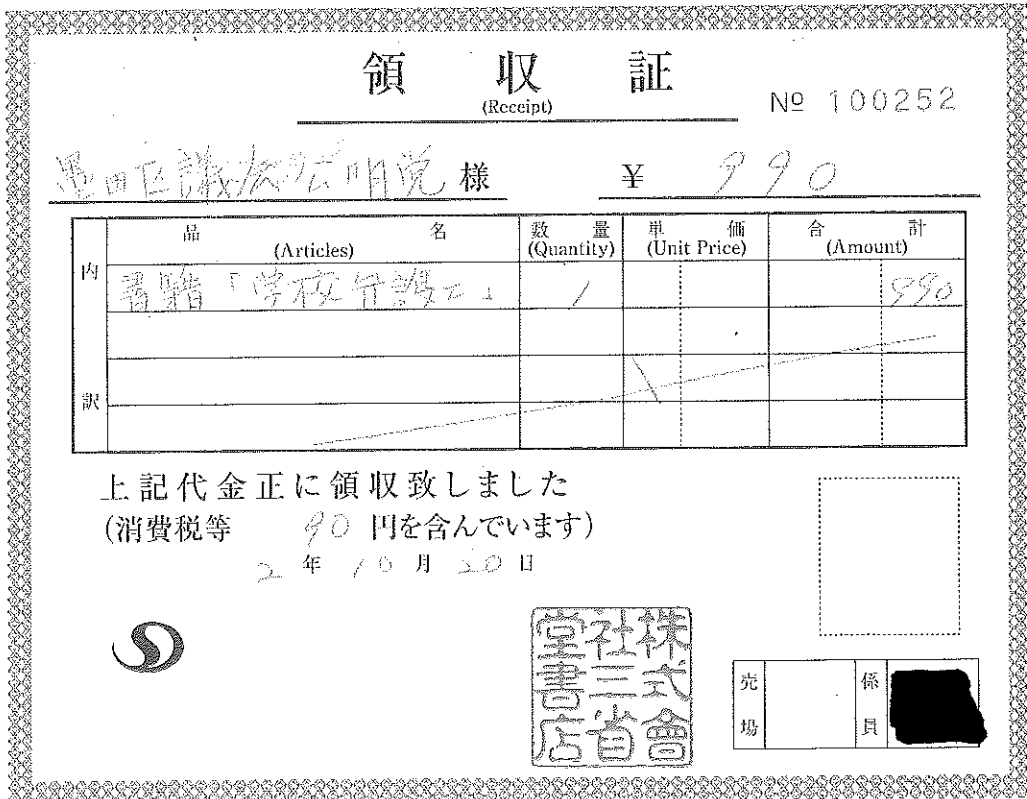 領収証
(Receipt)
№ 100252
墨田区議会公明党 様 ¥ 990
内訳
品名 (Articles) 数量 (Quantity) 単価 (Unit Price) 合計 (Amount)
書籍「学校弁護士」 1 990
上記代金正に領収致しました
(消費税等 90 円を含んでいます)
2 年 10 月 20 日
株式會社三省堂書店
売場 係員